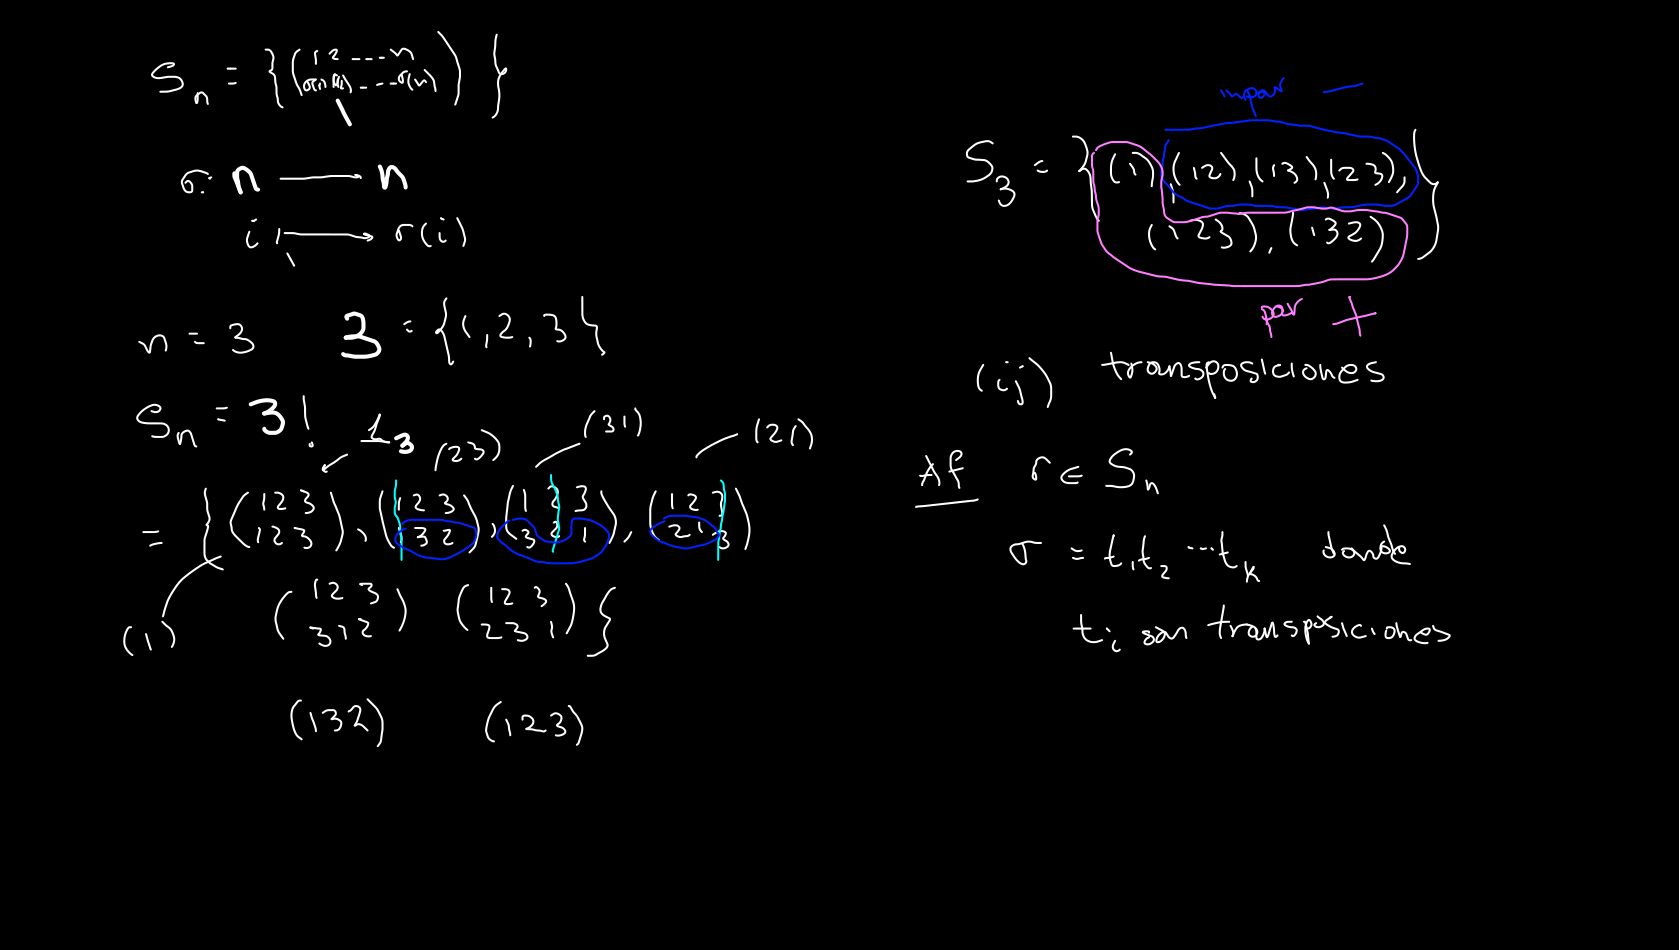 S_n = { ( 1 2 ---- n
σ(1) σ(2) ---- σ(n) ) }
σ: n ⟶ n
i ⟼ σ(i)
n = 3   3 = {1, 2, 3}
S_n = 3!
1_3   (23)   (31)   (21)
= { ( 1 2 3 ), ( 1 2 3 ), ( 1 2 3 ), ( 1 2 3 )
( 1 2 3 ), ( 1 3 2 ), ( 3 2 1 ), ( 2 1 3 )
( 1 2 3 ) ( 1 2 3 ) }
( 3 1 2 ) ( 2 3 1 )
(1)
(132)   (123)
impar —
S_3 = { (1), (12), (13), (23),
(123), (132) }
par +
(ij) transposiciones
Af   σ ∈ S_n
σ = t_1 t_2 ··· t_k donde
t_i son transposiciones